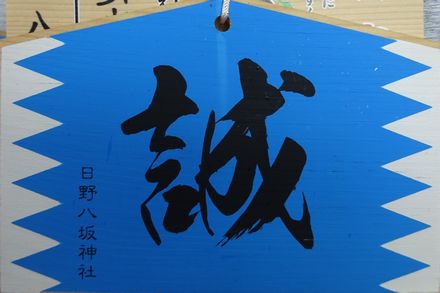 誠
日野八坂神社
八